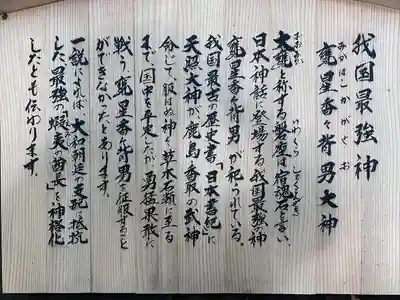 我国最強神
甕星香々背男大神
みかほしかがせお
大甕と称する磐座は宿魂石と言い、
おおみか いわくら しゅくこんせき
日本神話に登場する我国最強の神
甕星香々背男が祀られている。
我国最古の歴史書「日本書紀」に
天照大神が鹿島・香取の武神に
命じて、服はぬ神・草木石類に至る
まで、国中を平定したが、勇猛果敢に
戦う甕星香々背男を征服すること
ができなかったとあります。
一説によれば大和朝廷の支配に抵抗
した、最強の「蝦夷の酋長」を神格化
したとも伝わります。